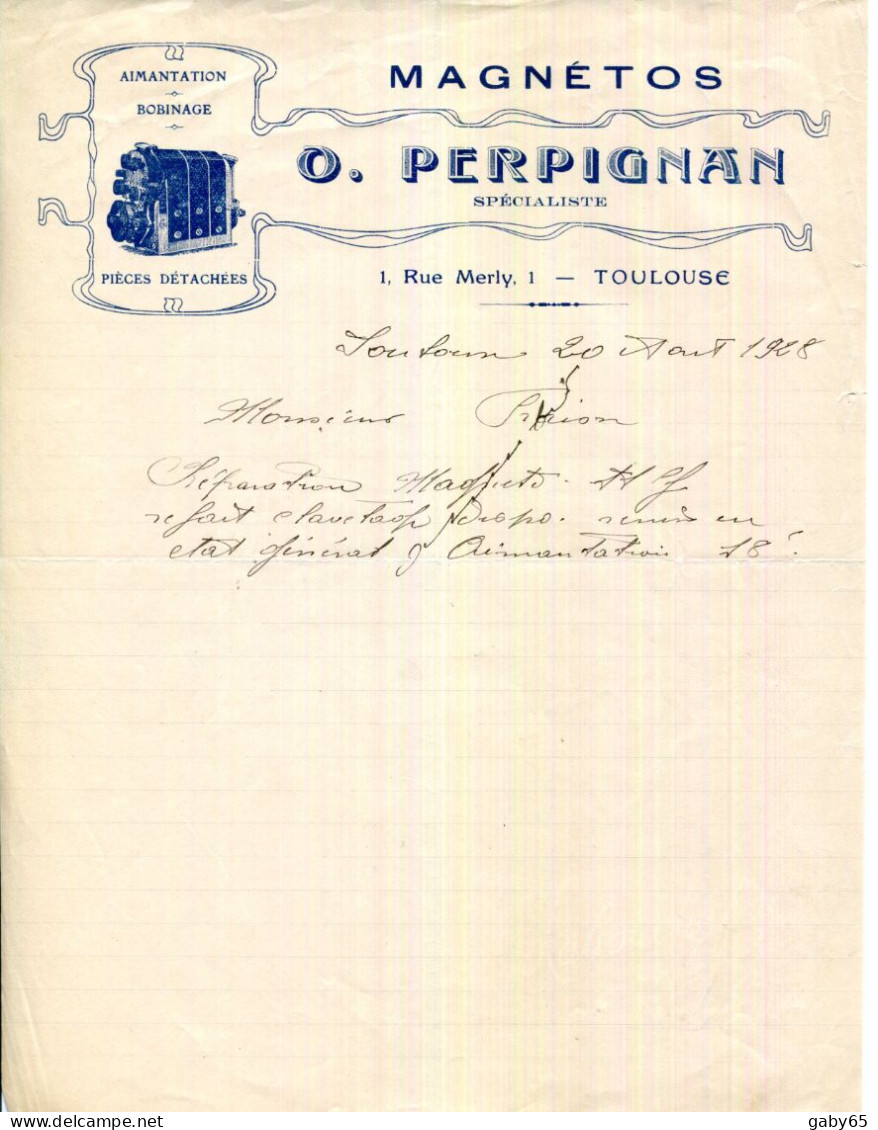 AIMANTATION
BOBINAGE
PIÈCES DÉTACHÉES
MAGNÉTOS
O. PERPIGNAN
SPÉCIALISTE
1, Rue Merly, 1 — TOULOUSE
20 Aout 1928
Monsieur
Réparation Magneto
refait remis en
etat général Aimantation 18
gaby65